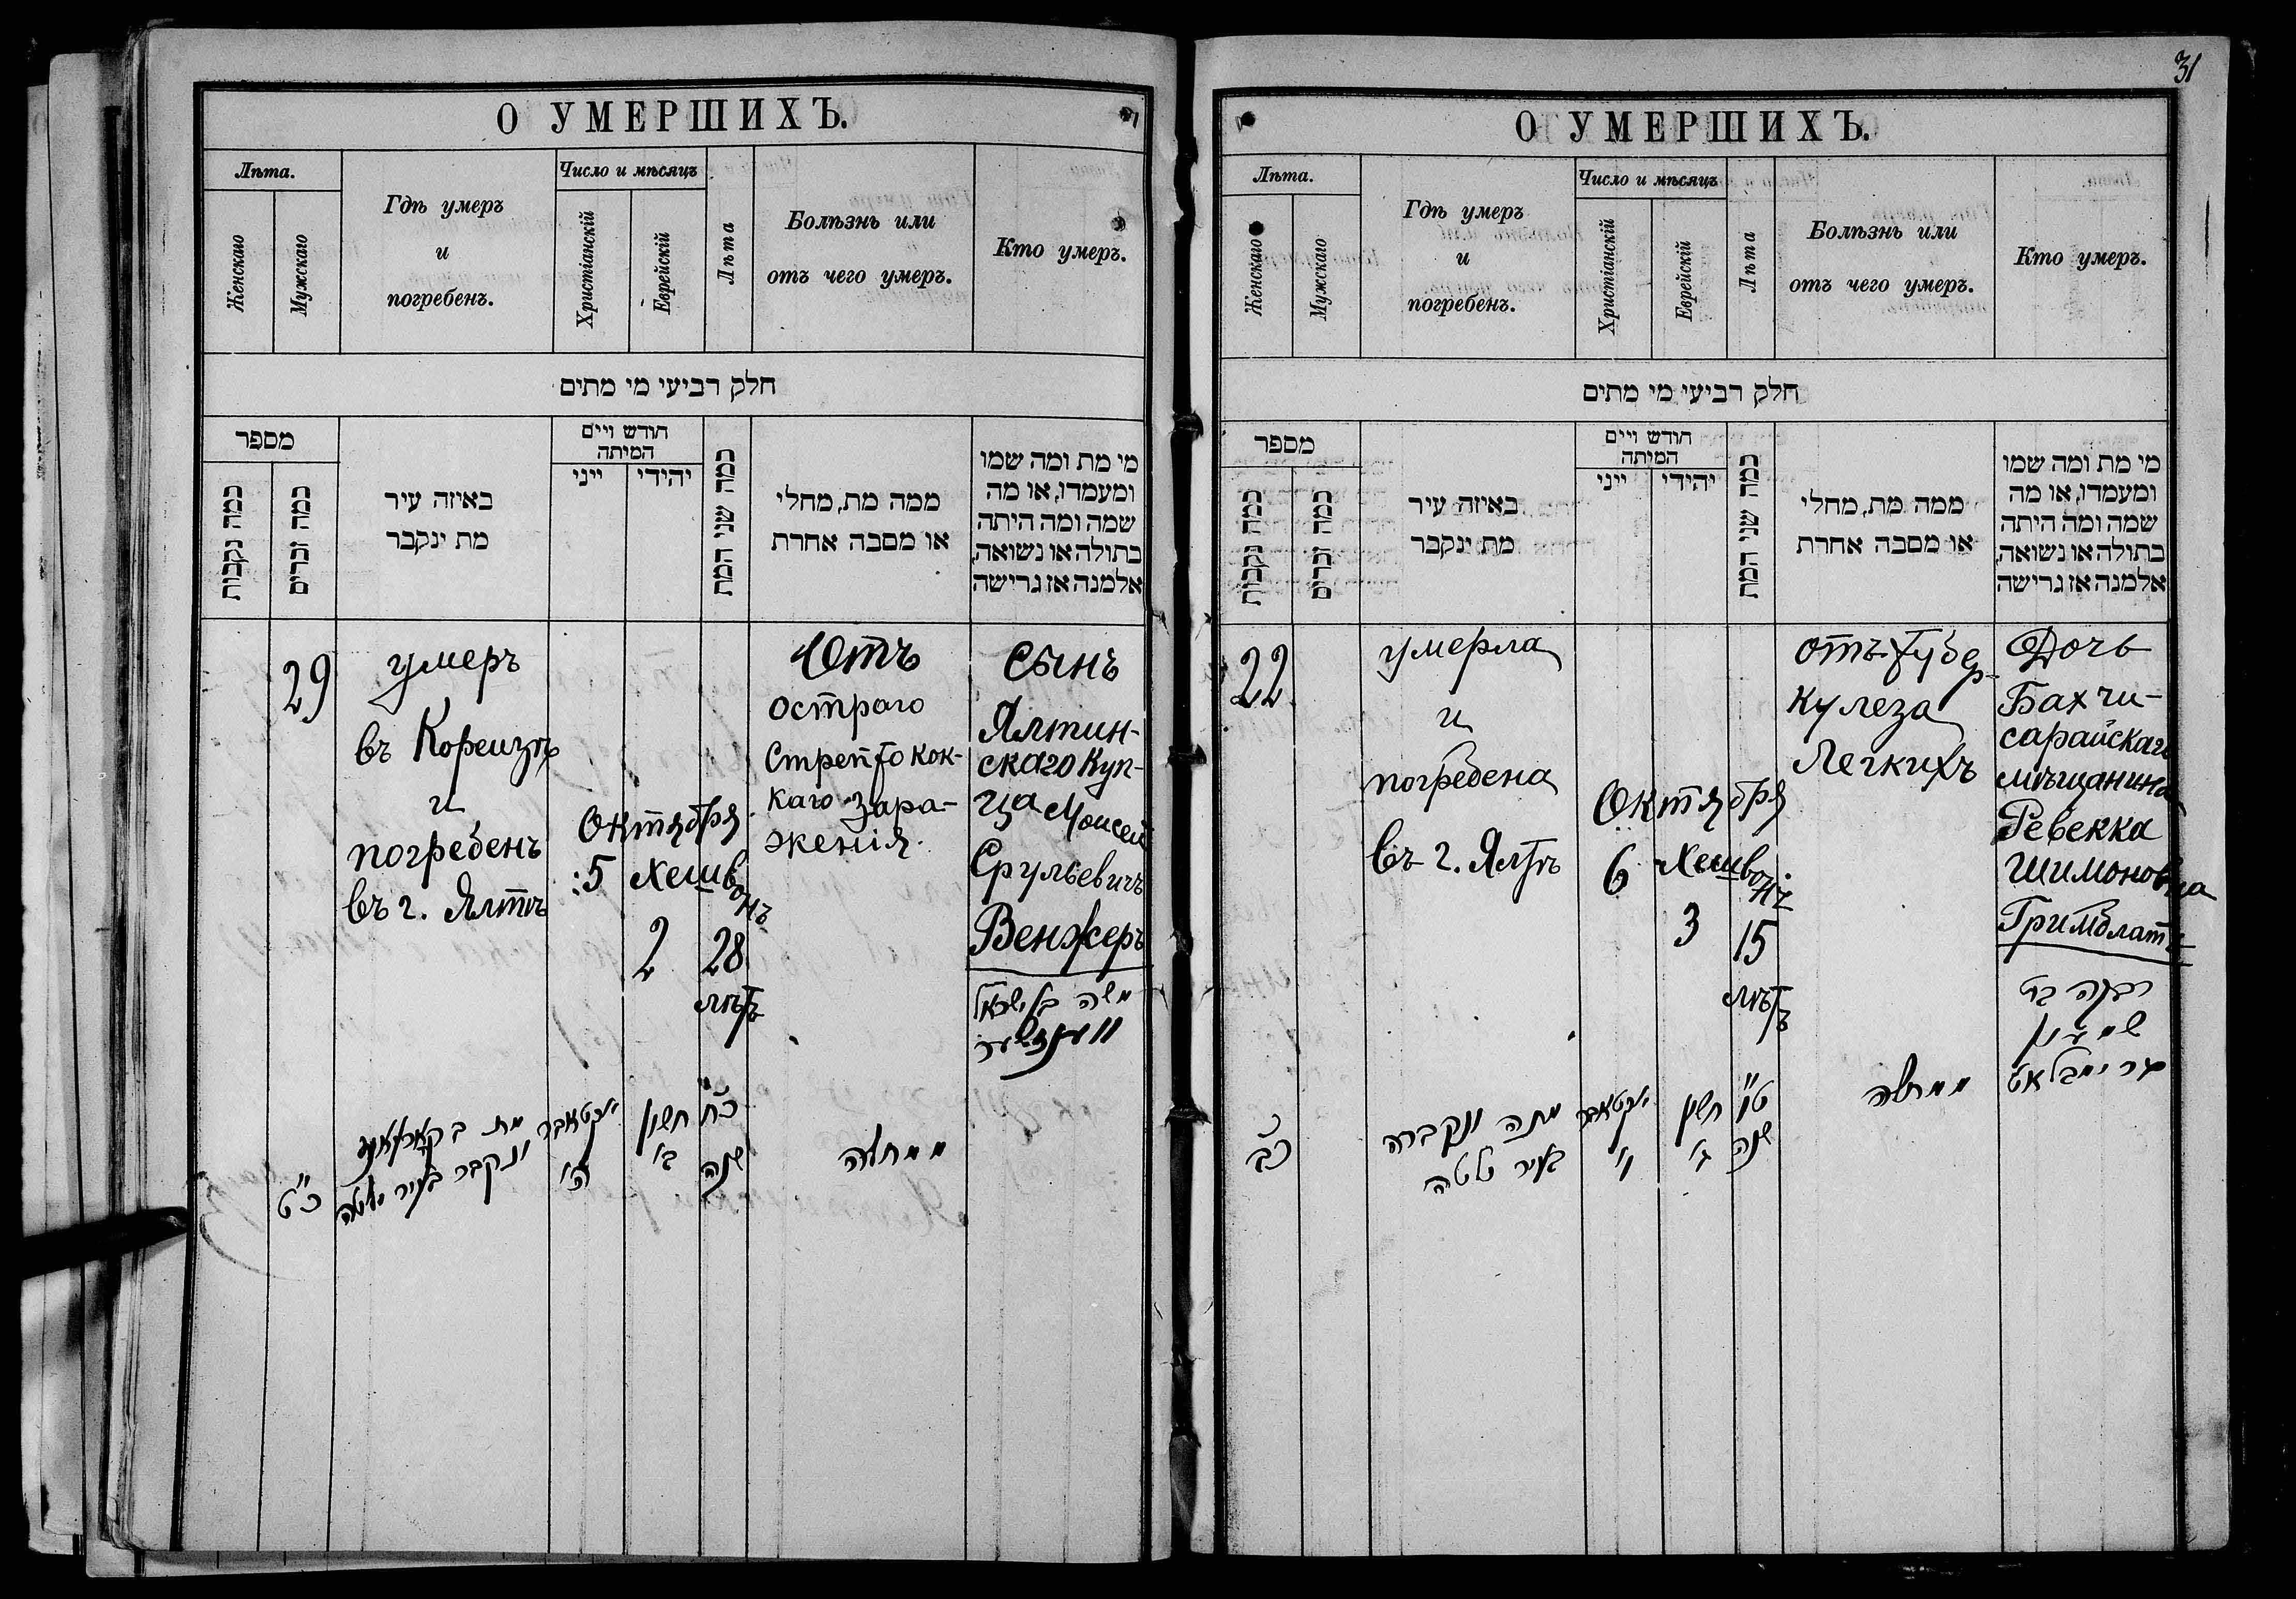 О УМЕРШИХЪ.
Лѣта.
Женскаго
Мужскаго
Гдѣ умеръ
и
погребенъ.
Число и мѣсяцъ
Христіанскій
Еврейскій
Лѣта
Болѣзнь или
отъ чего умеръ.
Кто умеръ.
חלק רביעי מי מתים
מספר
כמה נקבות
כמה זכרים
באיזה עיר
מת ינקבר
חודש ויים
המיתה
ייני
יהידי
כמה שני המת
ממה מת, מחלי
או מסבה אחרת
מי מת ומה שמו
ומעמדו, או מה
שמה ומה היתה
בתולה או נשואה,
אלמנה אז גרישה
29
умеръ
въ Кореизѣ
и
погребенъ
въ г. Ялтѣ
Октября
5 Хешвонъ
2
28
лѣтъ
Отъ
остраго
стрептокок-
каго зара-
женія.
Сынъ
Ялтин-
скаго Куп-
ца Моисей
Срульевичъ
Венжеръ
משה בן ישראל
ווענזשער
כ"ט
ונקבר בעיר יאלטה
אקטאבר
ה'
חשון
ב'
כ"ח
שנה
ממחלה
31
О УМЕРШИХЪ.
Лѣта.
Женскаго
Мужскаго
Гдѣ умеръ
и
погребенъ.
Число и мѣсяцъ
Христіанскій
Еврейскій
Лѣта
Болѣзнь или
отъ чего умеръ.
Кто умеръ.
חלק רביעי מי מתים
מספר
כמה נקבות
כמה זכרים
באיזה עיר
מת ינקבר
חודש ויים
המיתה
ייני
יהידי
כמה שני המת
ממה מת, מחלי
או מסבה אחרת
מי מת ומה שמו
ומעמדו, או מה
שמה ומה היתה
בתולה או נשואה,
אלמנה אז גרישה
22
умерла
и
погребена
въ г. Ялтѣ
Октября
6 Хешвонъ
3
15
лѣтъ
отъ тубер-
кулеза
Легкихъ
Дочь
Бахчи-
сарайскаго
мѣщанина
Ревекка
Шимоновна
Гримблатъ
רבקה בת
שמעון
גרימבלאט
כ"ב
מתה ונקברה
בעיר ילטה
אקטאבר
ו'
חשון
ג'
ט"ו
שנה
ממחלה